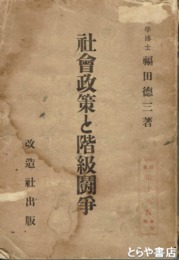 學博士 福田德三著
社會政策と階級鬪爭
改造社出版
とらや書店